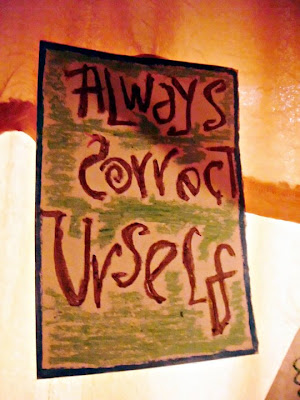 ALWayS
CorrecT
UrSeLf